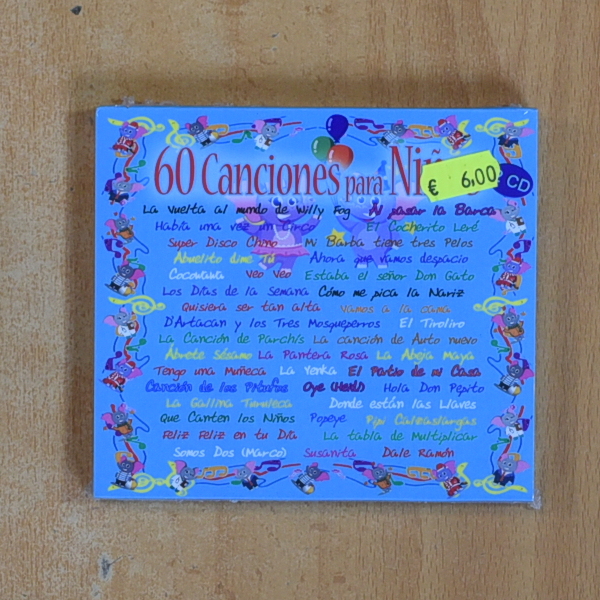 60 Canciones para Niñ
€ 6,00
CD
La vuelta al mundo de Willy Fog Al pasar la Barca
Había una vez un Circo El Cocherito Leré
Super Disco Chino Mi Barba tiene tres Pelos
Abuelito dime Tú Ahora que vamos despacio
Cocouaua Veo Veo Estaba el señor Don Gato
Los Días de la Semana Cómo me pica la Nariz
Quisiera ser tan alta Vamos a la cama
D'Artacan y los Tres Mosqueperros El Tiroliro
La Canción de Parchís La canción de Auto nuevo
Ábrete sésamo La Pantera Rosa La Abeja Maya
Tengo una Muñeca La Yenka El Patio de mi Casa
Canción de los Pitufos Oye (Heidi) Hola Don Pepito
La Gallina Turuleca Donde están las Llaves
Que Canten los Niños Popeye Pipi Calzaslargas
Feliz Feliz en tu Día La tabla de Multiplicar
Somos Dos (Marco) Susanita Dale Ramón